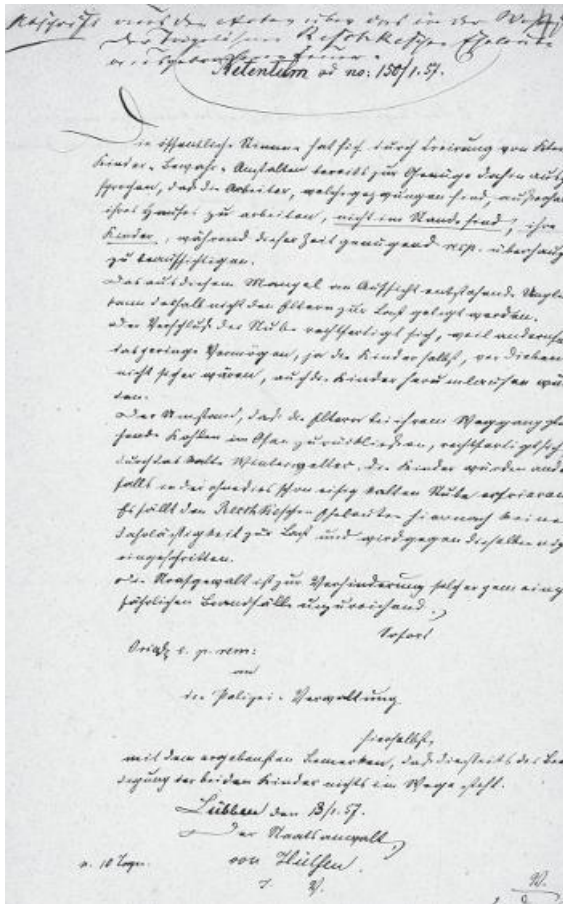 Abschrift aus den Akten über das in der
der Reschkeschen Eheleute
ausgebrochene Feuer.
Retentum ad no: 150/1.57.
Die öffentliche Stimme hat sich durch Creirung von Klein
Kinder-Bewahr-Anstalten bereits zur Genüge dahin ausge
sprochen, daß die Arbeiter, welche gezwungen sind, außerhalb
ihres Hauses zu arbeiten, nicht im Stande sind, ihre
Kinder, während dieser Zeit genügend resp. überhaupt
zu beaufsichtigen.
Das aus diesem Mangel an Aufsicht entstehende Unglück
kann deshalb nicht den Eltern zur Last gelegt werden.
Der Verschluß der Stube rechtfertigt sich, weil andernfalls
das geringe Vermögen, ja die Kinder selbst, vor Dieben
nicht sicher wären, auch die Kinder herumlaufen wür
den.
Der Umstand, daß die Eltern bei ihrem Weggang glü
hende Kohlen im Ofen zurückließen, rechtfertigt sich
durch das kalte Winterwetter. Die Kinder würden andern
falls in der ohnedies schon eisig kalten Stube erfrieren.
Es fällt den Reschkeschen Eheleuten hiernach keine
Fahrlässigkeit zur Last und wird gegen dieselben nicht
eingeschritten.
Die Strafgewalt ist zur Verhinderung solcher gemeinge
fährlichen Brandfälle unzureichend.
Sofort
s. p. rem:
an
die Polizei-Verwaltung
hierselbst,
mit dem ergebensten Bemerken, daß diesseits der Beer
digung der beiden Kinder nichts im Wege steht.
Lübben den 13/1.57.
Der Staatsanwalt
von Hülsen.
n. 10 Tagen.